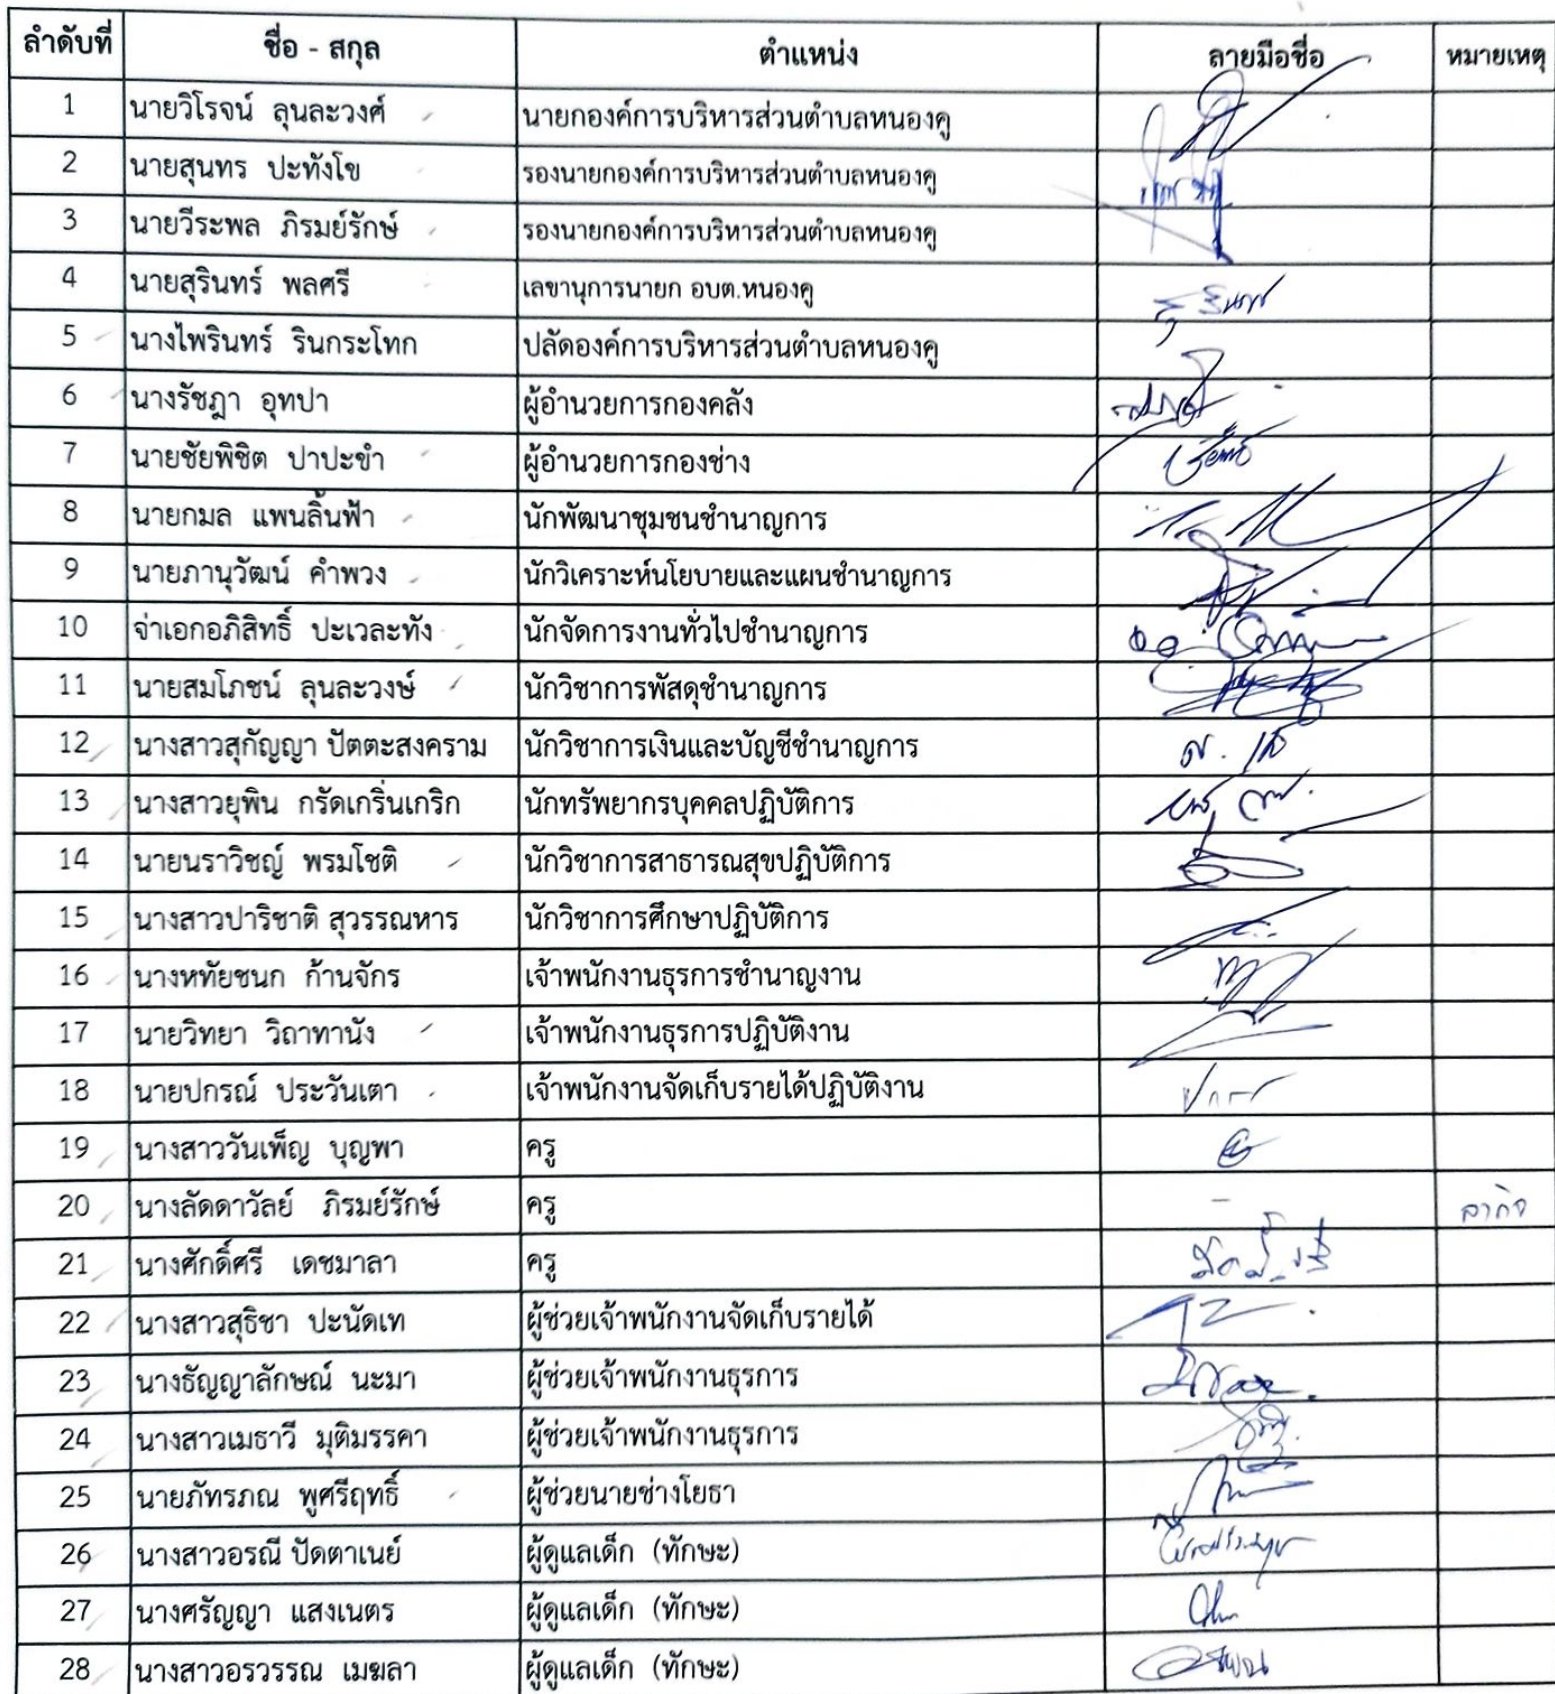 ลำดับที่ ชื่อ - สกุล ตำแหน่ง ลายมือชื่อ หมายเหตุ
1 นายวิโรจน์ ลุนละวงศ์ นายกองค์การบริหารส่วนตำบลหนองคู
2 นายสุนทร ปะทังโข รองนายกองค์การบริหารส่วนตำบลหนองคู
3 นายวีระพล ภิรมย์รักษ์ รองนายกองค์การบริหารส่วนตำบลหนองคู
4 นายสุรินทร์ พลศรี เลขานุการนายก อบต.หนองคู
5 นางไพรินทร์ รินกระโทก ปลัดองค์การบริหารส่วนตำบลหนองคู
6 นางรัชฎา อุทปา ผู้อำนวยการกองคลัง
7 นายชัยพิชิต ปาปะขำ ผู้อำนวยการกองช่าง
8 นายกมล แพนลิ้นฟ้า นักพัฒนาชุมชนชำนาญการ
9 นายภานุวัฒน์ คำพวง นักวิเคราะห์นโยบายและแผนชำนาญการ
10 จ่าเอกอภิสิทธิ์ ปะเวละทัง นักจัดการงานทั่วไปชำนาญการ
11 นายสมโภชน์ ลุนละวงษ์ นักวิชาการพัสดุชำนาญการ
12 นางสาวสุกัญญา ปัตตะสงคราม นักวิชาการเงินและบัญชีชำนาญการ
13 นางสาวยุพิน กรัดเกริ่นเกริก นักทรัพยากรบุคคลปฏิบัติการ
14 นายนราวิชญ์ พรมโชติ นักวิชาการสาธารณสุขปฏิบัติการ
15 นางสาวปาริชาติ สุวรรณหาร นักวิชาการศึกษาปฏิบัติการ
16 นางหทัยชนก ก้านจักร เจ้าพนักงานธุรการชำนาญงาน
17 นายวิทยา วิถาทานัง เจ้าพนักงานธุรการปฏิบัติงาน
18 นายปกรณ์ ประวันเตา เจ้าพนักงานจัดเก็บรายได้ปฏิบัติงาน ปกร
19 นางสาววันเพ็ญ บุญพา ครู
20 นางลัดดาวัลย์ ภิรมย์รักษ์ ครู - ลากิจ
21 นางศักดิ์ศรี เดชมาลา ครู
22 นางสาวสุธิชา ปะนัดเท ผู้ช่วยเจ้าพนักงานจัดเก็บรายได้
23 นางธัญญาลักษณ์ นะมา ผู้ช่วยเจ้าพนักงานธุรการ
24 นางสาวเมธาวี มุติมรรคา ผู้ช่วยเจ้าพนักงานธุรการ
25 นายภัทรภณ พูศรีฤทธิ์ ผู้ช่วยนายช่างโยธา
26 นางสาวอรณี ปัดตาเนย์ ผู้ดูแลเด็ก (ทักษะ)
27 นางศรัญญา แสงเนตร ผู้ดูแลเด็ก (ทักษะ)
28 นางสาวอรวรรณ เมฆลา ผู้ดูแลเด็ก (ทักษะ)